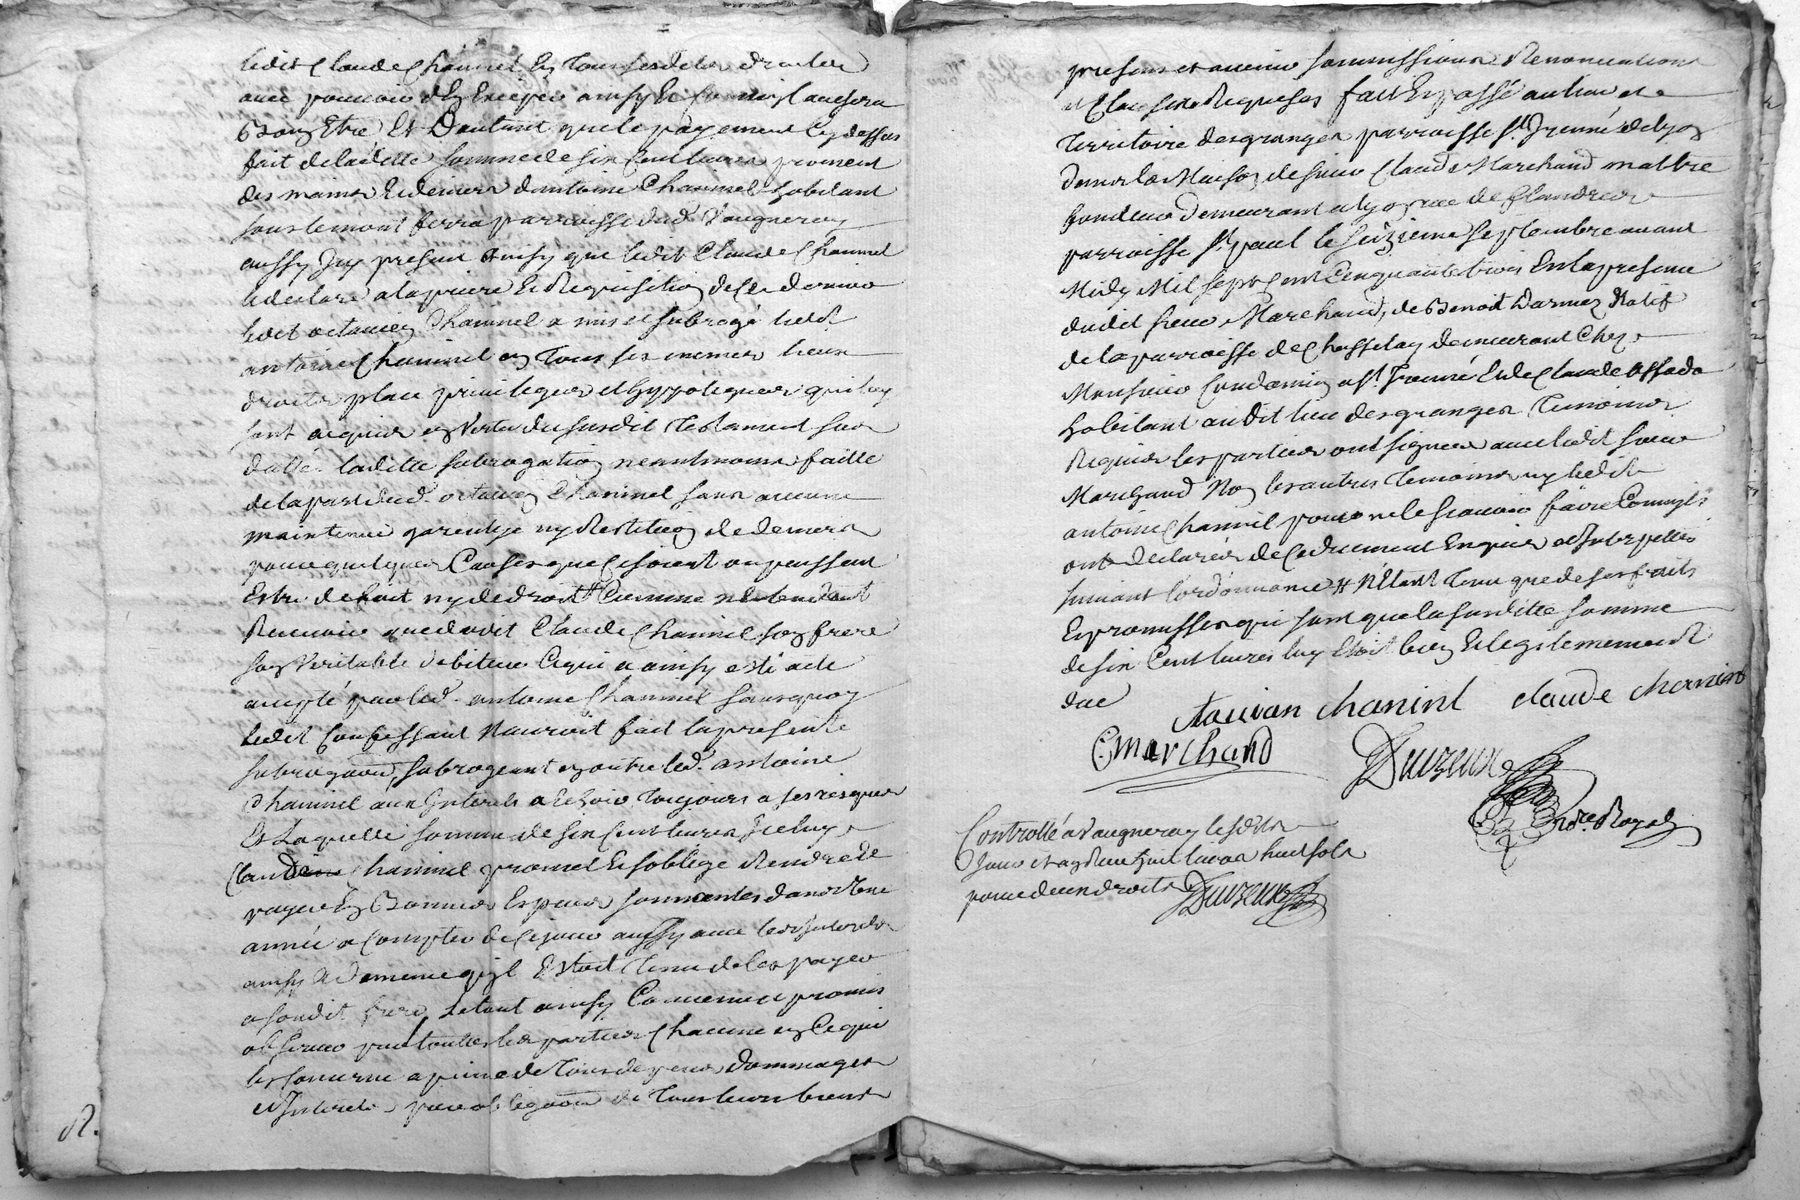 ledit Claude Chaninel En tous ses dits droits
avec pouvoir d'En Exciper ainsy Et Comme il avisera
Bon Etre Et D'autant que le payement Cy dessus
fait de ladette somme de six Cent livres provient
des mains Et deniers d'antoine Chaninel habitant
sous le mont ferra parroisse dud. Vaugneray
aussy Icy present ainsy que ledit Claude Chaninel
le declare a la priere Et Requisition de Ce dernier
ledit octavien Chaninel a mis et subrogé ledit
antoine Chaninel en Tous ses memes lieux
droits place privileges et hyppoteques qui luy
sont acquis en vertu du susdit Testament sus
datté ladite subrogation neantmoins faitte
de la part dud. octavien Chaninel sans aucune
maintenue garentye ny Restitution de deniers
pour quelques Causes que Ce soient ou puissent
Estre de fait ny de droit Comme n'Entendant
Recevoir que dudit Claude Chaninel son frere
son Veritable debiteur Ce qui a ainsy esté
accepté par led. antoine Chaninel sans quoy
ledit Confessant N'auroit fait la presente
subrogaon, subrogeant en outre led. antoine
Chaninel aux Interets a Echoir Toujours a ses risques
Et Laquelle somme de six Cent livres Iceluy
Claude Chaninel promet Et s'oblige Rendre Et
payer En Bonnes Especes sonnantes dans Une
année a Compter de Ce jour aussy avec les Interets
ainsy Et De meme qu'il Estoit Tenu de les payer
a sondit frere, Le tout ainsy Convenu promis
observer par touttes les parties Chacune en Ce qui
les Concerne a peine de Tous depens dommages
et Interets, par obligaon de Tous leurs biens
R.
presens et avenir soumissions Renonciations
et Clauses Requises fait Et passé au lieu et
Territoire des granges parroisse St. Irenné de lyon
Dans la Maison de sieur Claude Marchand maître
fondeur Demeurant a lyon rue de flandres
parroisse St. paul le seizieme septembre avant
Midy Mil sept Cent Cinquante trois En la presence
dudit sieur Marchand, de Benoit Darmez Natif
de la parroisse de Chasselay demeurant Chez
Monsieur Condamin a St. Irenné Et de Claude
habitant audit lieu des granges Temoins
Requis les parties ont signées avec ledit sieur
Marchand Non les autres Temoins ny ledit
antoine Chaninel pour ne le sçavoir faire Comm'ils
ont Declarés de Ce duement Enquis et Interpellés
suivant l'ordonnance N'Etant Tenu que de ses faits
Et promesses qui sont que la susditte somme
de six Cent livres luy Etoit bien Et legitimement
due
chaninl claude chaninl
C marchand Duizeux
No.re Royal
Controllé a Vaugneray le
Jour et an Reçu huit livres huit sols
pour deux droits Duizeux